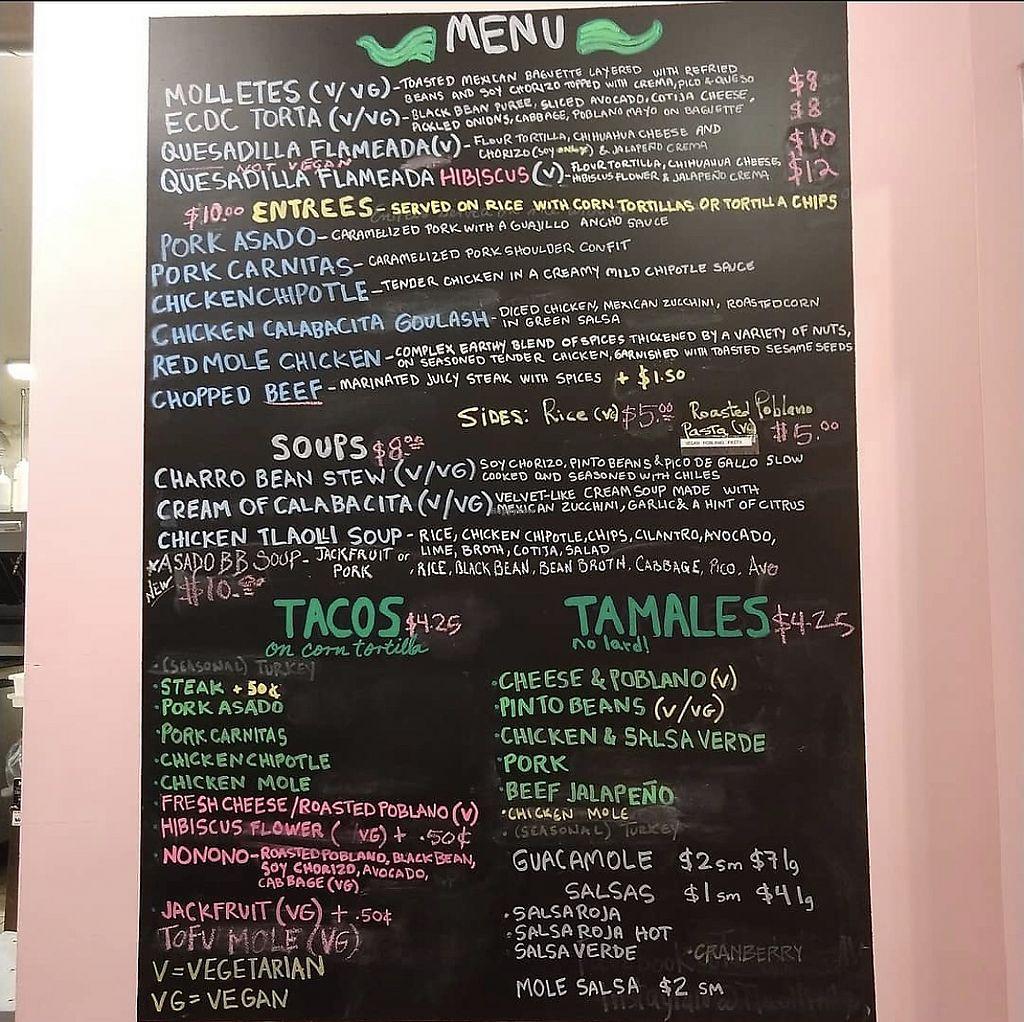 MENU
MOLLETES (V/VG) - TOASTED MEXICAN BAGUETTE LAYERED WITH REFRIED
BEANS AND SOY CHORIZO TOPPED WITH CREMA, PICO & QUESO $8
ECDC TORTA (V/VG) - BLACK BEAN PUREE, SLICED AVOCADO, COTIJA CHEESE,
PICKLED ONIONS, CABBAGE, POBLANO MAYO ON BAGUETTE $8
QUESADILLA FLAMEADA (V) - FLOUR TORTILLA, CHIHUAHUA CHEESE AND
CHORIZO (SOY ONLY) & JALAPEÑO CREMA $10
NOT VEGAN
QUESADILLA FLAMEADA HIBISCUS (V) - FLOUR TORTILLA, CHIHUAHUA CHEESE,
HIBISCUS FLOWER & JALAPEÑO CREMA $12
$10.00 ENTREES - SERVED ON RICE WITH CORN TORTILLAS OR TORTILLA CHIPS
PORK ASADO - CARAMELIZED PORK WITH A GUAJILLO ANCHO SAUCE
PORK CARNITAS - CARAMELIZED PORK SHOULDER CONFIT
CHICKEN CHIPOTLE - TENDER CHICKEN IN A CREAMY MILD CHIPOTLE SAUCE
CHICKEN CALABACITA GOULASH - DICED CHICKEN, MEXICAN ZUCCHINI, ROASTED CORN
IN GREEN SALSA
RED MOLE CHICKEN - COMPLEX EARTHY BLEND OF SPICES THICKENED BY A VARIETY OF NUTS,
ON SEASONED TENDER CHICKEN, GARNISHED WITH TOASTED SESAME SEEDS
CHOPPED BEEF - MARINATED JUICY STEAK WITH SPICES + $1.50
SIDES: Rice (VG) $5.00 Roasted Poblano
Pasta (VG) $5.00
VEGAN POBLANO PASTA
SOUPS $8.00
CHARRO BEAN STEW (V/VG) SOY CHORIZO, PINTO BEANS & PICO DE GALLO SLOW
COOKED AND SEASONED WITH CHILES
CREAM OF CALABACITA (V/VG) VELVET-LIKE CREAM SOUP MADE WITH
MEXICAN ZUCCHINI, GARLIC & A HINT OF CITRUS
CHICKEN TLAOLLI SOUP - RICE, CHICKEN CHIPOTLE, CHIPS, CILANTRO, AVOCADO,
LIME, BROTH, COTIJA, SALAD
*ASADO BB SOUP - JACKFRUIT or
PORK, RICE, BLACK BEAN, BEAN BROTH, CABBAGE, PICO, AVO
NEW $10.00
TACOS $4.25
on corn tortilla
• (SEASONAL) TURKEY
• STEAK + 50¢
• PORK ASADO
• PORK CARNITAS
• CHICKEN CHIPOTLE
• CHICKEN MOLE
• FRESH CHEESE/ROASTED POBLANO (V)
• HIBISCUS FLOWER ( VG) + .50¢
• NONONO - ROASTED POBLANO, BLACK BEAN,
SOY CHORIZO, AVOCADO,
CABBAGE (VG)
• JACKFRUIT (VG) + .50¢
TOFU MOLE (VG)
V = VEGETARIAN
VG = VEGAN
TAMALES $4.25
no lard!
• CHEESE & POBLANO (V)
• PINTO BEANS (V/VG)
• CHICKEN & SALSA VERDE
• PORK
• BEEF JALAPEÑO
• CHICKEN MOLE
• (SEASONAL) TURKEY
GUACAMOLE $2 sm $7 lg
SALSAS $1 sm $4 lg
• SALSA ROJA
• SALSA ROJA HOT
SALSA VERDE • CRANBERRY
MOLE SALSA $2 SM